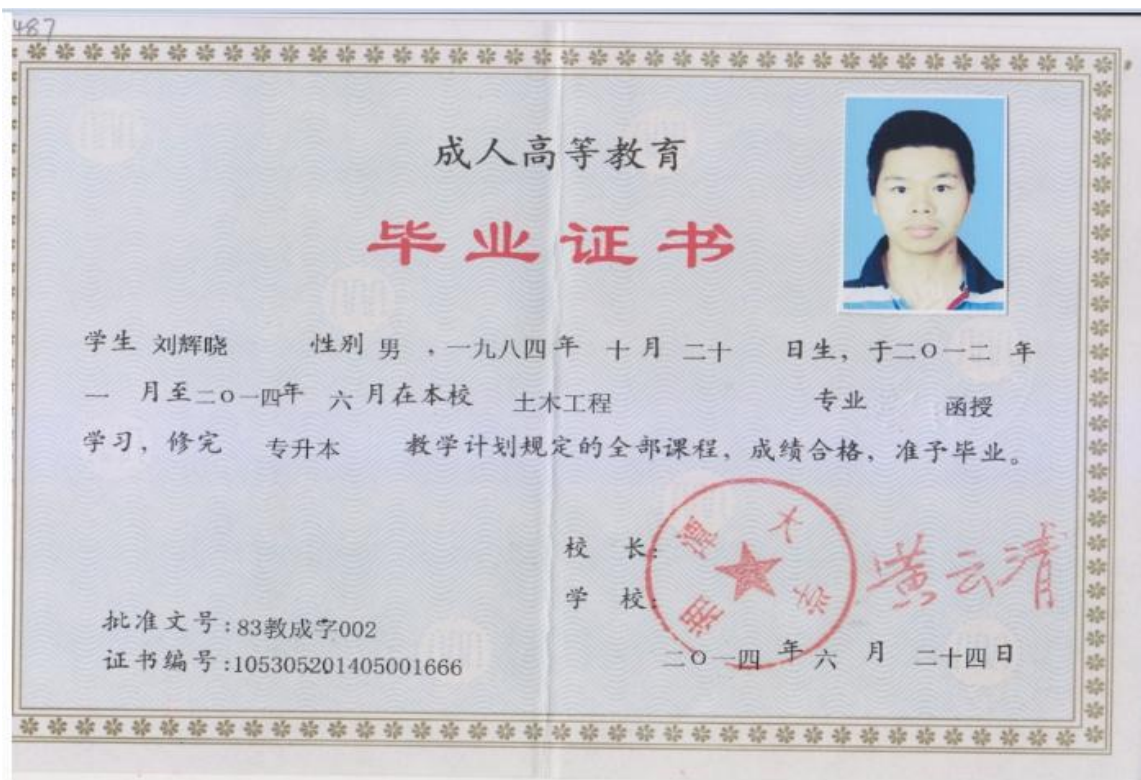 487
成人高等教育
毕业证书
学生 刘辉晓 性别 男 ，一九八四年 十月 二十 日生，于二〇一二 年
一 月至二〇一四年 六月在本校 土木工程 专业 函授
学习，修完 专升本 教学计划规定的全部课程，成绩合格，准予毕业。
校 长：黄云清
学 校：
湘潭大学
批准文号:83教成字002
证书编号:105305201405001666
二〇一四 年六 月 二十四日